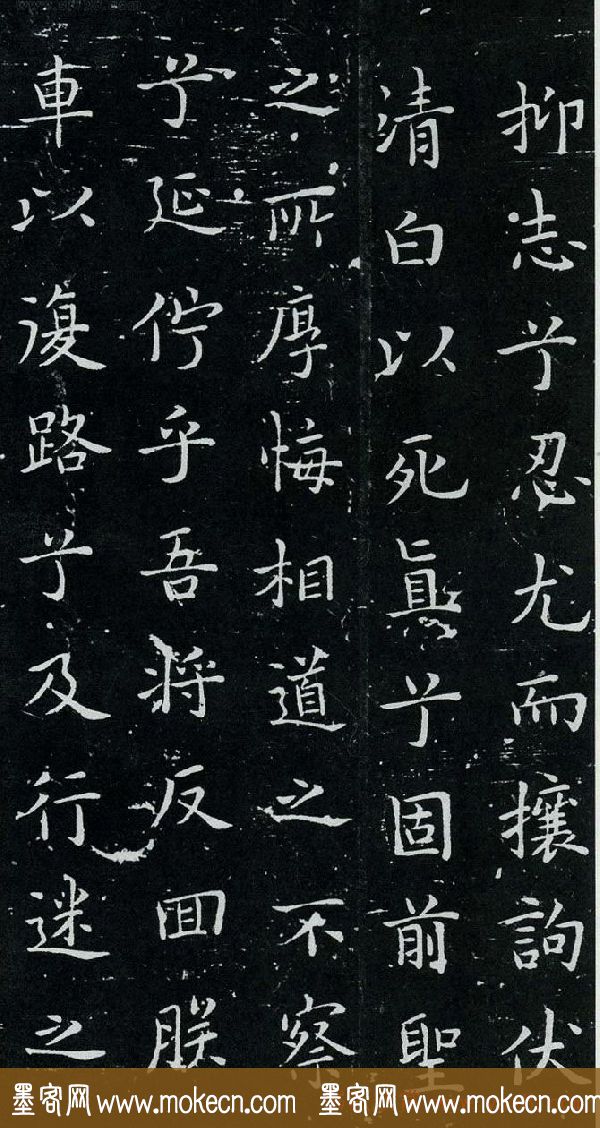 抑志兮忍尤而攘詢伏
清白以死眞兮固前聖
之所厚悔相道之不察
兮延佇乎吾將反回朕
車以復路兮及行迷之
墨客网 www.mokecn.com 墨客网 www.mokecn.com